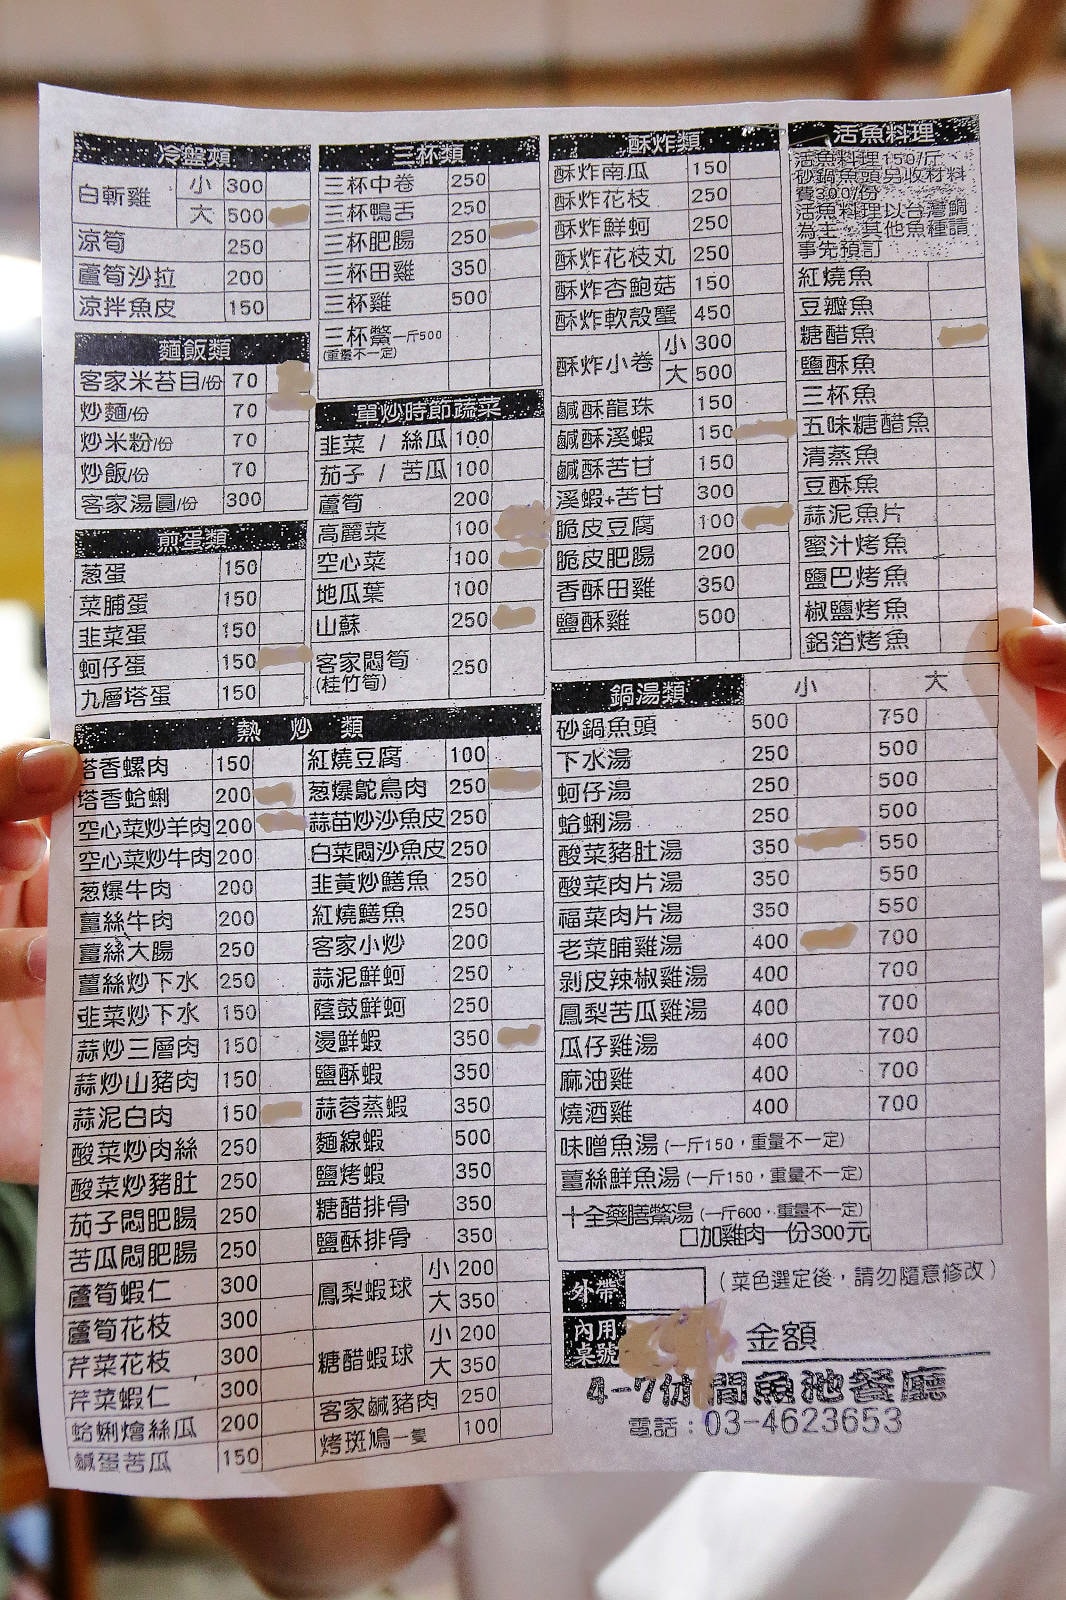 冷盤類
白斬雞 小 300
大 500
涼筍 250
蘆筍沙拉 200
涼拌魚皮 150
麵飯類
客家米苔目/份 70
炒麵/份 70
炒米粉/份 70
炒飯/份 70
客家湯圓/份 300
煎蛋類
葱蛋 150
菜脯蛋 150
韭菜蛋 150
蚵仔蛋 150
九層塔蛋 150
三杯類
三杯中卷 250
三杯鴨舌 250
三杯肥腸 250
三杯田雞 350
三杯雞 500
三杯鱉一斤500
(重量不一定)
單炒時節蔬菜
韭菜 / 絲瓜 100
茄子 / 苦瓜 100
蘆筍 200
高麗菜 100
空心菜 100
地瓜葉 100
山蘇 250
客家悶筍 250
(桂竹筍)
酥炸類
酥炸南瓜 150
酥炸花枝 250
酥炸鮮蚵 250
酥炸花枝丸 250
酥炸杏鮑菇 150
酥炸軟殼蟹 450
酥炸小卷 小 300
大 500
鹹酥龍珠 150
鹹酥溪蝦 150
鹹酥苦甘 150
溪蝦+苦甘 300
脆皮豆腐 100
脆皮肥腸 200
香酥田雞 350
鹽酥雞 500
活魚料理
活魚料理150/斤
砂鍋魚頭另收材料
費300/份
活魚料理以台灣鯛
為主，其他魚種請
事先預訂
紅燒魚
豆瓣魚
糖醋魚
鹽酥魚
三杯魚
五味糖醋魚
清蒸魚
豆酥魚
蒜泥魚片
蜜汁烤魚
鹽巴烤魚
椒鹽烤魚
鋁箔烤魚
熱炒類
塔香螺肉 150
塔香蛤蜊 200
空心菜炒羊肉 200
空心菜炒牛肉 200
葱爆牛肉 200
薑絲牛肉 200
薑絲大腸 250
薑絲炒下水 250
韭菜炒下水 150
蒜炒三層肉 150
蒜炒山豬肉 150
蒜泥白肉 150
酸菜炒肉絲 250
酸菜炒豬肚 250
茄子悶肥腸 250
苦瓜悶肥腸 250
蘆筍蝦仁 300
蘆筍花枝 300
芹菜花枝 300
芹菜蝦仁 300
蛤蜊燴絲瓜 200
鹹蛋苦瓜 150
紅燒豆腐 100
葱爆鴕鳥肉 250
蒜苗炒沙魚皮 250
白菜悶沙魚皮 250
韭黃炒鱔魚 250
紅燒鱔魚 250
客家小炒 200
蒜泥鮮蚵 250
蔭鼓鮮蚵 250
燙鮮蝦 350
鹽酥蝦 350
蒜蓉蒸蝦 350
麵線蝦 500
鹽烤蝦 350
糖醋排骨 350
鹽酥排骨 350
鳳梨蝦球 小 200
大 350
糖醋蝦球 小 200
大 350
客家鹹豬肉 250
烤斑鳩一隻 100
鍋湯類 小 大
砂鍋魚頭 500 750
下水湯 250 500
蚵仔湯 250 500
蛤蜊湯 250 500
酸菜豬肚湯 350 550
酸菜肉片湯 350 550
福菜肉片湯 350 550
老菜脯雞湯 400 700
剝皮辣椒雞湯 400 700
鳳梨苦瓜雞湯 400 700
瓜仔雞湯 400 700
麻油雞 400 700
燒酒雞 400 700
味噌魚湯 (一斤150，重量不一定)
薑絲鮮魚湯 (一斤150，重量不一定)
十全藥膳鱉湯 (一斤600，重量不一定)
□加雞肉一份300元
外帶 (菜色選定後，請勿隨意修改)
內用
桌號 金額
4-7休閒魚池餐廳
電話：03-4623653